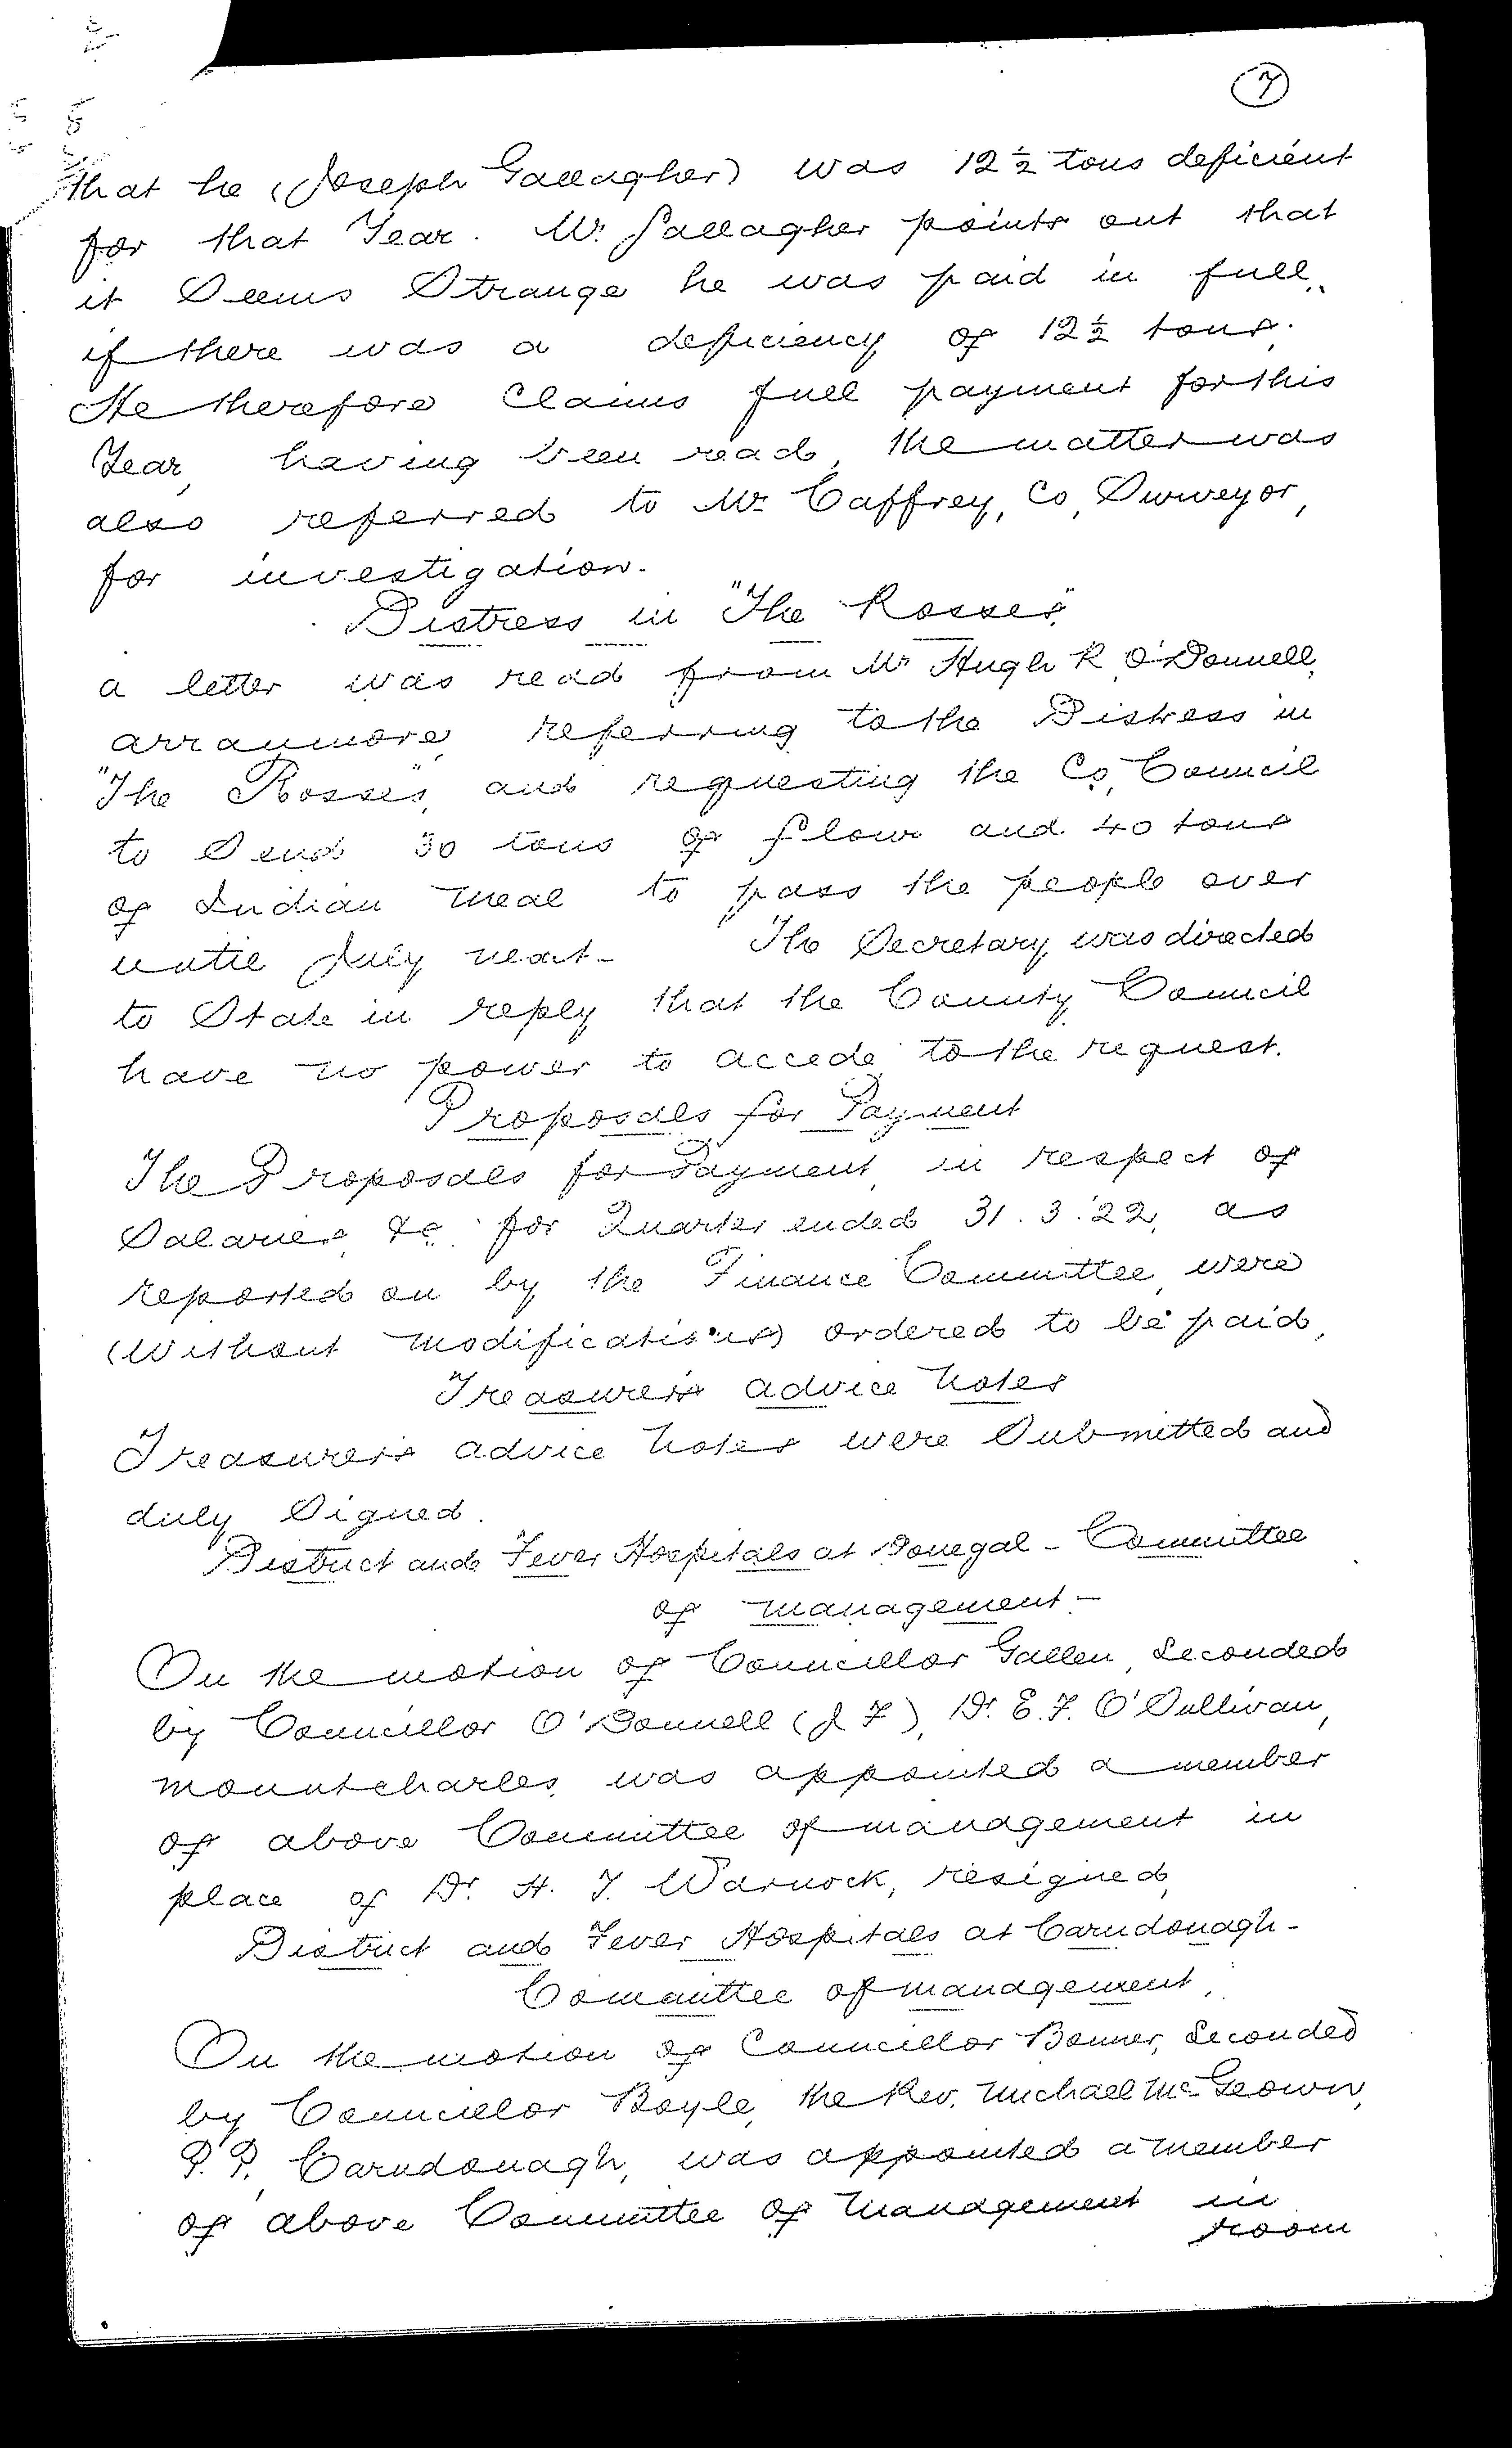 7
that he (Joseph Gallagher) was 12½ tons deficient
for that Year. Mr. Gallagher points out that
it Seems Strange he was paid in full,
if there was a deficiency of 12½ tons.
He therefore Claims full payment for this
Year, having been read, the matter was
also referred to Mr. Caffrey, Co, Surveyor,
for investigation.
Distress in "The Rosses"
a letter was read from Mr Hugh R O'Donnell,
arranmore, referring to the Distress in
"The Rosses", and requesting the Co, Council
to Send 30 tons of flour and 40 tons
of Indian meal to pass the people over
until July next - The Secretary was directed
to State in reply that the County Council
have no power to accede to the request.
Proposals for Payment
The Proposals for Payment, in respect of
Salaries, &c. for Quarter ended 31.3.'22, as
reported on by the Finance Committee, were
(without modifications) ordered to be paid,
Treasurer's advice notes
Treasurer's advice notes were Submitted and
duly Signed.
District and Fever Hospitals at Donegal - Committee
of management -
On the motion of Councillor Gallen, Seconded
by Councillor O'Donnell (J F), Dr. E. F. O'Sullivan,
mountcharles, was appointed a member
of above Committee of management in
place of Dr. H. J. Warnock, resigned,
District and Fever Hospitals at Carndonagh -
Committee of management,
On the motion of Councillor Bonner, Seconded
by Councillor Boyle, the Rev. Michael McGeown,
P.P, Carndonagh, was appointed a member
of above Committee of management in
room